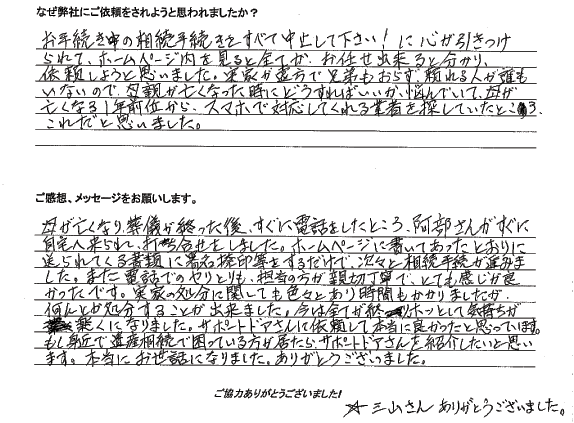 なぜ弊社にご依頼をされようと思われましたか？
お手続き中の相続手続きをすべて中止して下さい！に心が引きつけ
られて、ホームページ内を見ると全てが、お任せ出来ると分かり、
依頼しようと思いました。実家が遠方で兄弟もおらず、頼れる人が誰も
いないので、母親が亡くなった時にどうすればいいか悩んでいて、母が
亡くなる1年前位から、スマホで対応してくれる業者を探していたところ、
これだと思いました。
ご感想、メッセージをお願いします。
母が亡くなり、葬儀が終った後、すぐに電話をしたところ、阿部さんがすぐに
自宅へ来られ、打ち合せをしました。ホームページに書いてあったとおりに
送られてくる書類に署名捺印等をするだけで、次々と相続手続が進みま
した。また電話でのやりとりも、担当の方が親切丁寧で、とても感じが良
かったです。実家の処分に関しても色々とあり時間もかかりましたが、
何とか処分することが出来ました。今は全てが終わりホッとして気持ちが
楽になりました。サポートドアさんに依頼して本当に良かったと思っています。
もし身近で遺産相続で困っている方が居たら、サポートドアさんを紹介したいと思い
ます。本当にお世話になりました。ありがとうございました。
ご協力ありがとうございました！
☆三山さんありがとうございました。